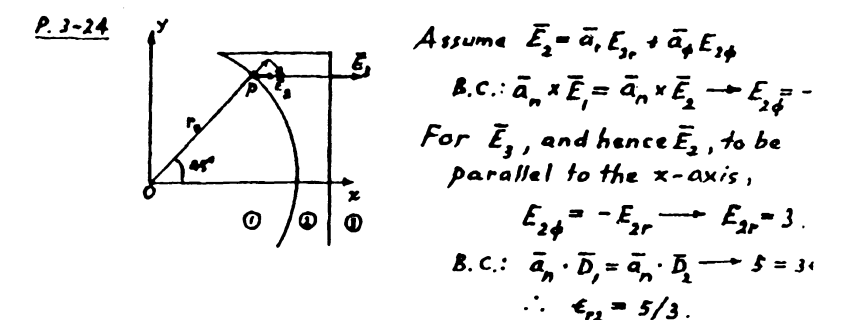 P. 3-24
y
Ē₃
P
Ē₂
r₀
45°
O
x
① ② ③
Assume Ē₂ = ā_r E₂r + ā_ϕ E₂ϕ
B.C.: ā_n × Ē₁ = ā_n × Ē₂ → E₂ϕ = -
For Ē₃, and hence Ē₂, to be
parallel to the x-axis,
E₂ϕ = -E₂r → E₂r = 3.
B.C.: ā_n · D̄₁ = ā_n · D̄₂ → 5 = 3
∴ ϵ_r2 = 5/3.